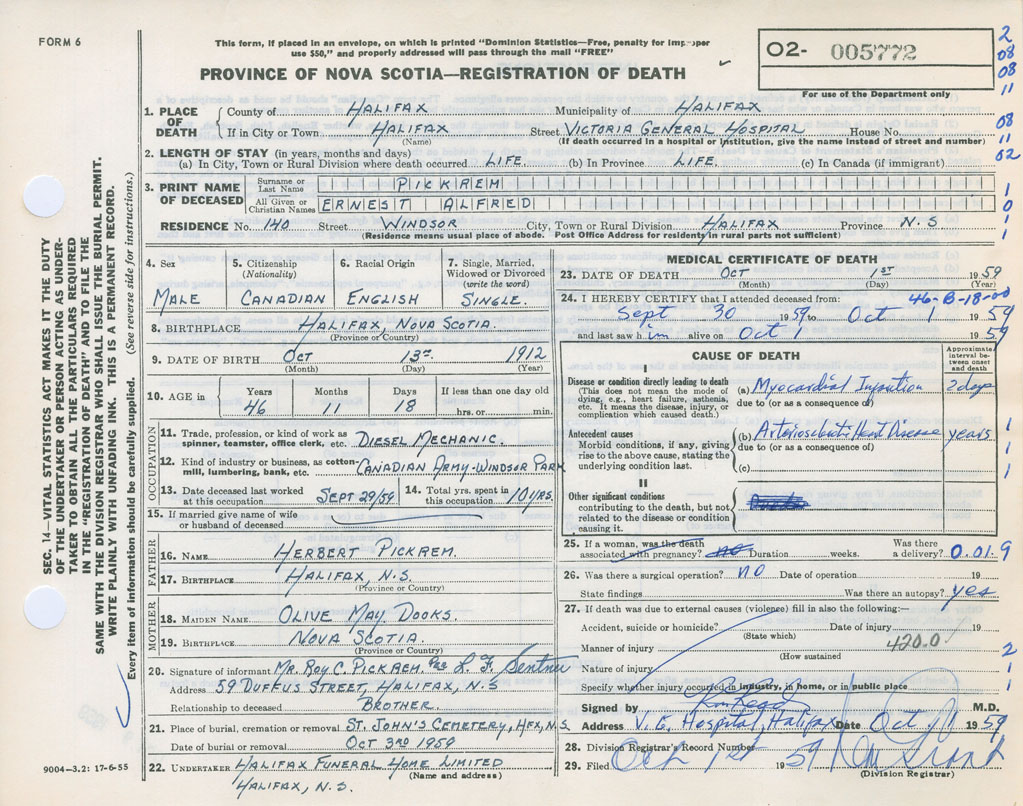 FORM 6
This form, if placed in an envelope, on which is printed "Dominion Statistics—Free, penalty for improper
use $50," and properly addressed will pass through the mail "FREE"
PROVINCE OF NOVA SCOTIA—REGISTRATION OF DEATH
O2- 005772
For use of the Department only
2
08
08
11
08
11
02
1
0
1
1. PLACE OF DEATH
County of HALIFAX Municipality of HALIFAX
If in City or Town HALIFAX Street VICTORIA GENERAL HOSPITAL House No.
(Name) (If death occurred in a hospital or institution, give the name instead of street and number)
2. LENGTH OF STAY (in years, months and days)
(a) In City, Town or Rural Division where death occurred LIFE (b) In Province LIFE (c) In Canada (if immigrant)
3. PRINT NAME OF DECEASED
Surname or Last Name PICKREM
All Given or Christian Names ERNEST ALFRED
RESIDENCE No. 140 Street WINDSOR City, Town or Rural Division HALIFAX Province N.S
(Residence means usual place of abode. Post Office Address for residents in rural parts not sufficient)
SEC. 14—VITAL STATISTICS ACT MAKES IT THE DUTY
OF THE UNDERTAKER OR PERSON ACTING AS UNDER-
TAKER TO OBTAIN ALL THE PARTICULARS REQUIRED
IN THE "REGISTRATION OF DEATH" AND TO FILE THE
SAME WITH THE DIVISION REGISTRAR WHO SHALL ISSUE THE BURIAL PERMIT.
WRITE PLAINLY WITH UNFADING INK. THIS IS A PERMANENT RECORD.
Every item of information should be carefully supplied. (See reverse side for instructions.)
4. Sex MALE
5. Citizenship (Nationality) CANADIAN
6. Racial Origin ENGLISH
7. Single, Married, Widowed or Divorced (write the word) SINGLE.
8. BIRTHPLACE HALIFAX, NOVA SCOTIA.
(Province or Country)
9. DATE OF BIRTH OCT 13TH 1912
(Month) (Day) (Year)
10. AGE in Years 46 Months 11 Days 18 If less than one day old hrs. or min.
OCCUPATION
11. Trade, profession, or kind of work as spinner, teamster, office clerk, etc. DIESEL MECHANIC.
12. Kind of industry or business, as cotton-mill, lumbering, bank, etc. CANADIAN ARMY-WINDSOR PARK
13. Date deceased last worked at this occupation SEPT 29/59
14. Total yrs. spent in this occupation 10 YRS.
15. If married give name of wife or husband of deceased
FATHER
16. NAME HERBERT PICKREM.
17. BIRTHPLACE HALIFAX, N.S.
(Province or Country)
MOTHER
18. MAIDEN NAME OLIVE MAY DOOKS.
19. BIRTHPLACE NOVA SCOTIA.
(Province or Country)
20. Signature of informant MR. ROY C. PICKREM. per L. F. Sentner
Address 59 DUFFUS STREET, HALIFAX, N.S
Relationship to deceased BROTHER.
21. Place of burial, cremation or removal ST. JOHN'S CEMETERY, HFX, N.S.
Date of burial or removal OCT 3RD 1959
22. UNDERTAKER HALIFAX FUNERAL HOME LIMITED
(Name and address)
HALIFAX, N.S.
9004-3.2: 17-6-55
MEDICAL CERTIFICATE OF DEATH
23. DATE OF DEATH OCT 1ST 1959
(Month) (Day) (Year)
24. I HEREBY CERTIFY that I attended deceased from: 46-B-18-00
Sept 30 1959 to Oct 1 1959
and last saw him alive on Oct 1 1959
CAUSE OF DEATH
Approximate interval between onset and death
I
Disease or condition directly leading to death
(This does not mean the mode of dying, e.g., heart failure, asthenia, etc. It means the disease, injury, or complication which caused death.)
(a) Myocardial Infarction 2 days
due to (or as a consequence of)
Antecedent causes
Morbid conditions, if any, giving rise to the above cause, stating the underlying condition last.
(b) Arteriosclerotic Heart Disease years
due to (or as a consequence of)
(c)
1
1
1
II
Other significant conditions
contributing to the death, but not related to the disease or condition causing it.
25. If a woman, was the death associated with pregnancy? no Duration weeks. Was there a delivery? 0.01.9
26. Was there a surgical operation? no Date of operation 19
State findings Was there an autopsy? yes
27. If death was due to external causes (violence) fill in also the following:—
Accident, suicide or homicide? Date of injury 19
(State which)
Manner of injury 420.0
(How sustained)
2
Nature of injury
Specify whether injury occurred in industry, in home, or in public place
1
Signed by M.D.
Address V.G. Hospital, Halifax Date Oct 1 1959
28. Division Registrar's Record Number
29. Filed Oct 1st 1959
(Division Registrar)